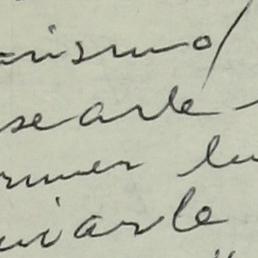 arismo
searle
rimer lu
uiarle